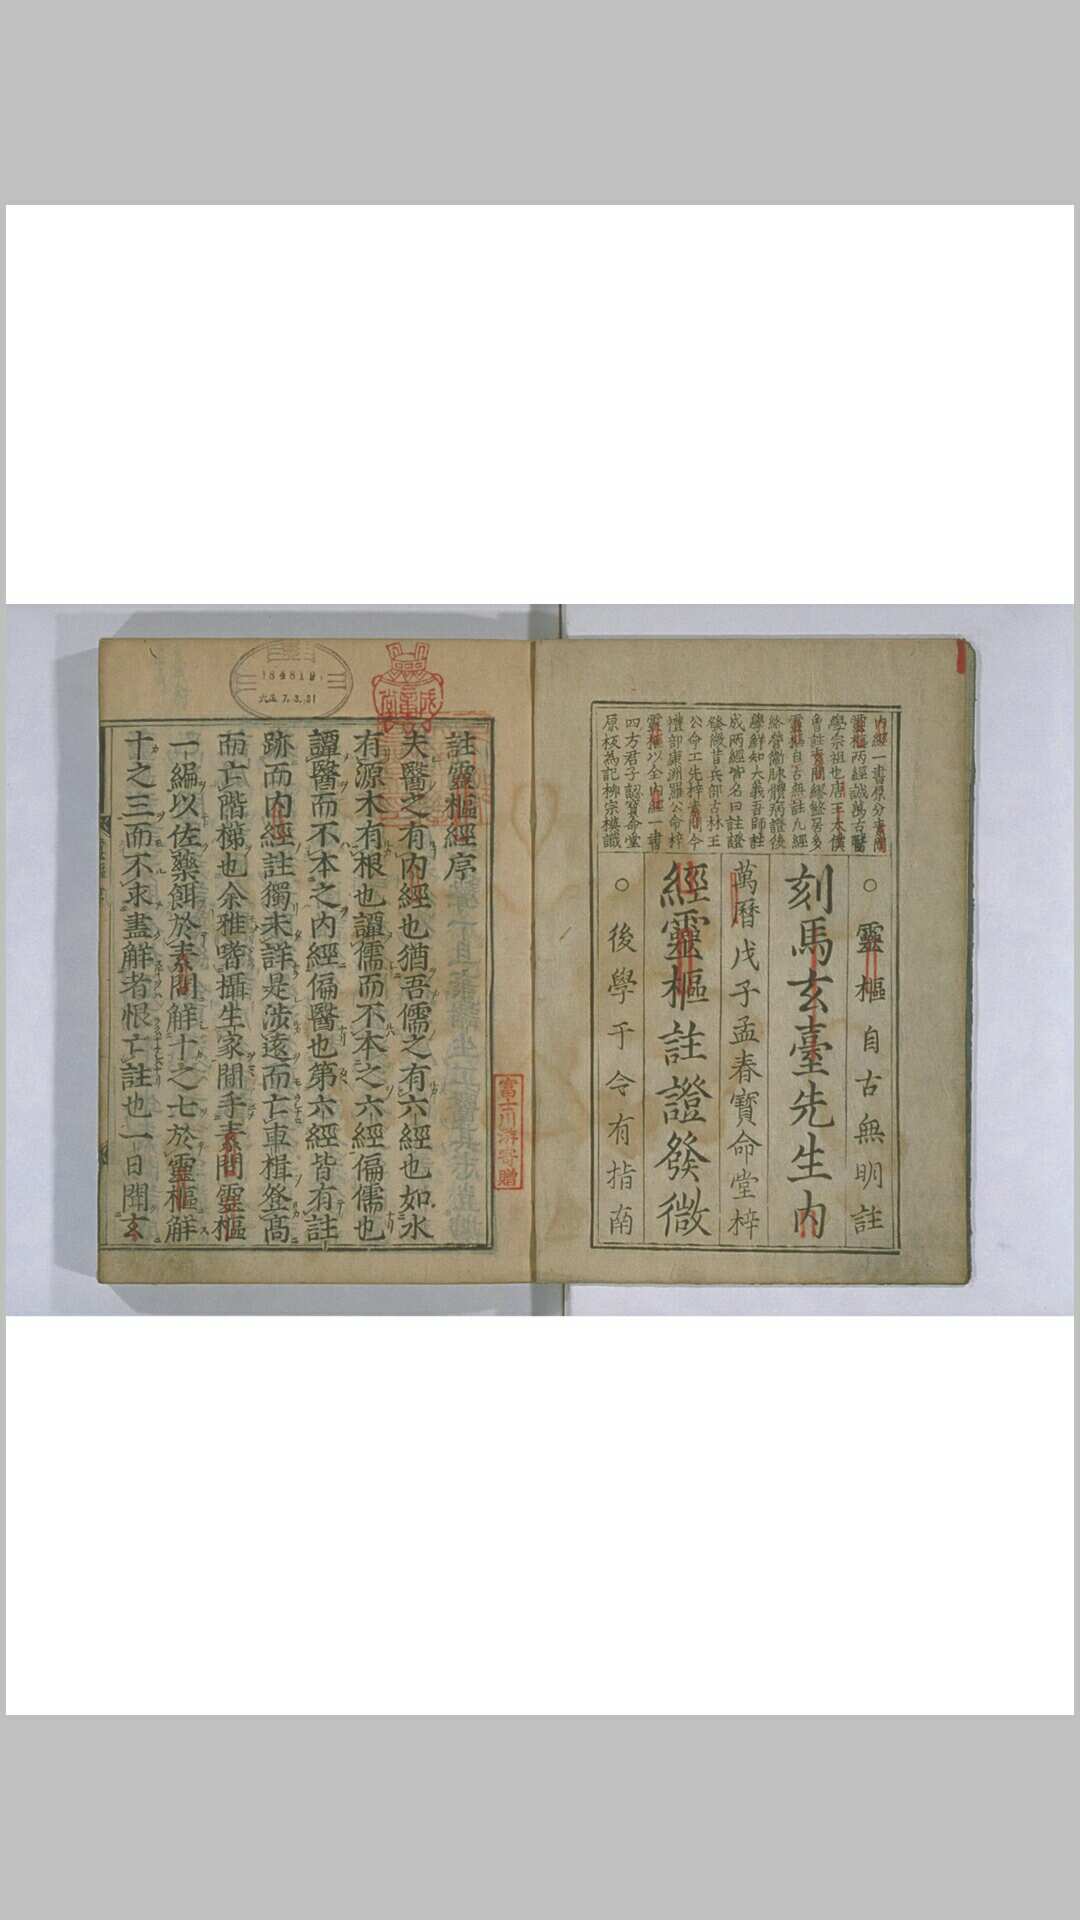 內經一書原分素問
靈樞兩經誠萬古醫
學宗祖也唐王太僕
曾註素問繆盭居多
靈樞自古無註凡經
絡營衛脉體病證後
學鮮知大義吾師註
成兩經皆名曰註證
發微昔兵部古林王
公命工先梓素問今
禮部康洲羅公命梓
靈樞以全內經一書
四方君子認寶命堂
原板為記柳宗棲識
○靈樞自古無明註
刻馬玄臺先生內
萬曆戊子孟春寶命堂梓
經靈樞註證發微
○後學于今有指南
富士川游寄贈
184819
大正 7.3.31
註靈樞經序
夫醫之有內經也猶吾儒之有六經也如水
有源木有根也譚儒而不本之六經偏儒也
譚醫而不本之內經偏醫也第六經皆有註
跡而內經註獨未詳是涉遠而亡車楫登高
而亡階梯也余雅嗜攝生家間手素問靈樞
一編以佐藥餌於素問解十之七於靈樞解
十之三而不求盡解者恨亡註也一日聞玄